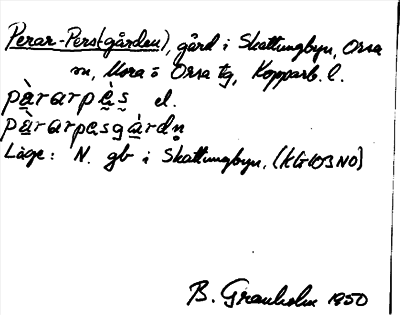 Perar-Pers(-gården), gård i Skattungbyn, Orsa
sn, Mora o Orsa tg, Kopparb. l.
pàrarpès el.
pàrarpesgàrdn
Läge: N. gb i Skattungbyn. (KG103NO)
B. Granholm 1950